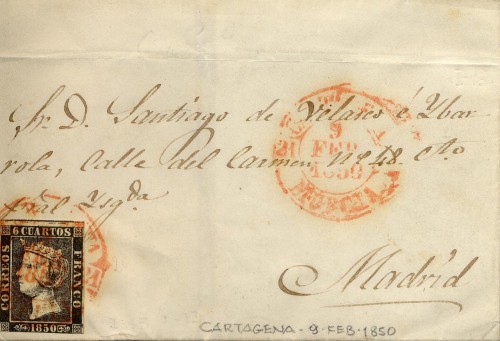 Sr. D. Santiago de Vilares é Ybar
rola, Calle del Carmen, Nº 48. Cto.
pral. Ysqda
Madrid
9
FEB
1850
MURCIA
6 CUARTOS
CORREOS
FRANCO
1850
CARTAGENA - 9-FEB-1850